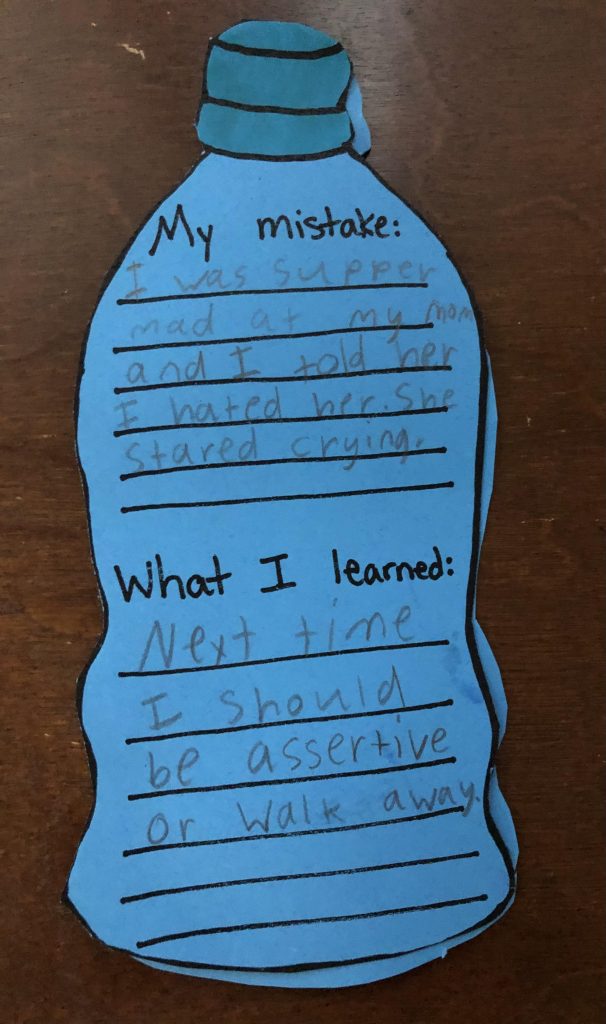 My mistake:
I was supper
mad at my mom
and I told her
I hated her. She
stared crying.
What I learned:
Next time
I should
be assertive
or walk away.